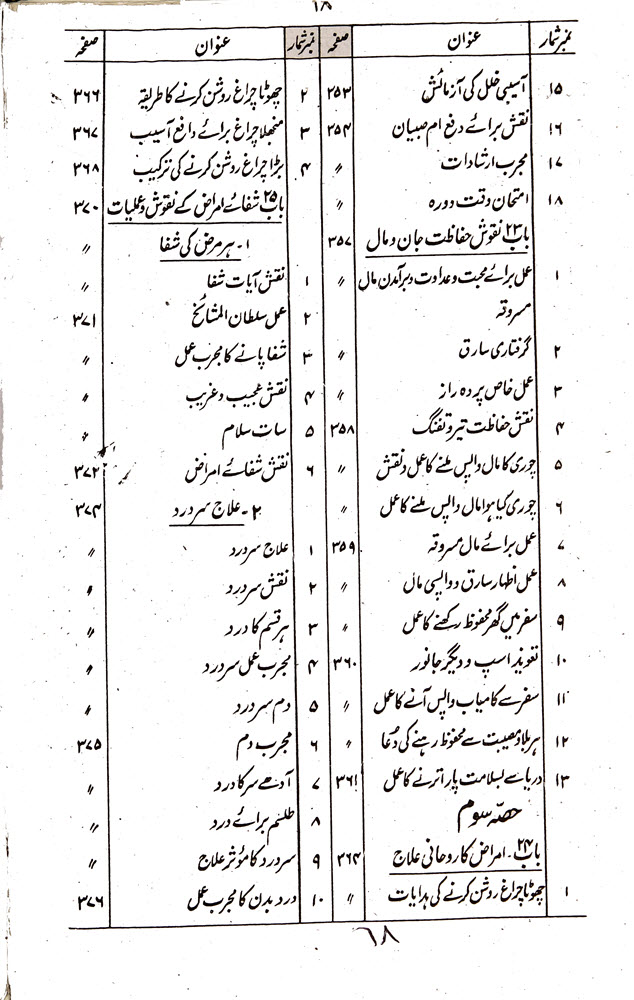 ۱۸
نمبر شمار عنوان صفحہ
۱۵ آسیبی خلل کی آزمائش ۲۵۳
۱۶ نقش برائے دفع ام صبیان ۲۵۴
۱۷ مجرب ارشادات 〃
۱۸ امتحان وقت دورہ 〃
باب ۲۳ نقوش حفاظت جان و مال ۳۵۷
۱ عمل برائے محبت و عداوت و برآمدن مال 〃
مسروقہ
۲ گرفتاری سارق 〃
۳ عمل خاص پردہ راز 〃
۴ نقش حفاظت تیر و تفنگ ۳۵۸
۵ چوری کا مال واپس ملنے کا عمل و نقش 〃
۶ چوری گیا ہوا مال واپس ملنے کا عمل 〃
۷ عمل برائے مال مسروقہ ۳۵۹
۸ عمل اظہار سارق و واپسی مال 〃
۹ سفر میں گھر محفوظ رکھنے کا عمل 〃
۱۰ تعویذ اسپ و دیگر جانور ۳۶۰
۱۱ سفر سے کامیاب واپس آنے کا عمل 〃
۱۲ ہر بلا و مصیبت سے محفوظ رہنے کی دعا 〃
۱۳ دریا سے بسلامت پار اترنے کا عمل ۳۶۱
حصّہ سوم
باب ۲۴۔ امراض کا روحانی علاج ۳۶۴
۱ چھوٹا چراغ روشن کرنے کی ہدایات 〃
نمبر شمار عنوان صفحہ
۲ چھوٹا چراغ روشن کرنے کا طریقہ ۳۶۶
۳ منجھلا چراغ برائے دافع آسیب ۳۶۷
۴ بڑا چراغ روشن کرنے کی ترکیب ۳۶۸
باب ۲۵ شفائے امراض کے نقوش و عملیات ۳۷۰
۱۔ ہر مرض کی شفا 〃
۱ نقش آیات شفا 〃
۲ عمل سلطان المشائخ ۳۷۱
۳ شفا پانے کا مجرب عمل 〃
۴ نقش عجیب و غریب 〃
۵ سات سلام 〃
۶ نقش شفائے امراض ۳۷۲
۲۔ علاج سر درد ۳۷۴
۱ علاج سر درد 〃
۲ نقش سر درد 〃
۳ ہر قسم کا درد 〃
۴ مجرب عمل سر درد 〃
۵ دم سر درد 〃
۶ مجرب دم ۳۷۵
۷ آدھے سر کا درد 〃
۸ طلسم برائے درد 〃
۹ سر درد کا مؤثر علاج 〃
۱۰ درد بدن کا مجرب عمل ۳۷۶
۶۸